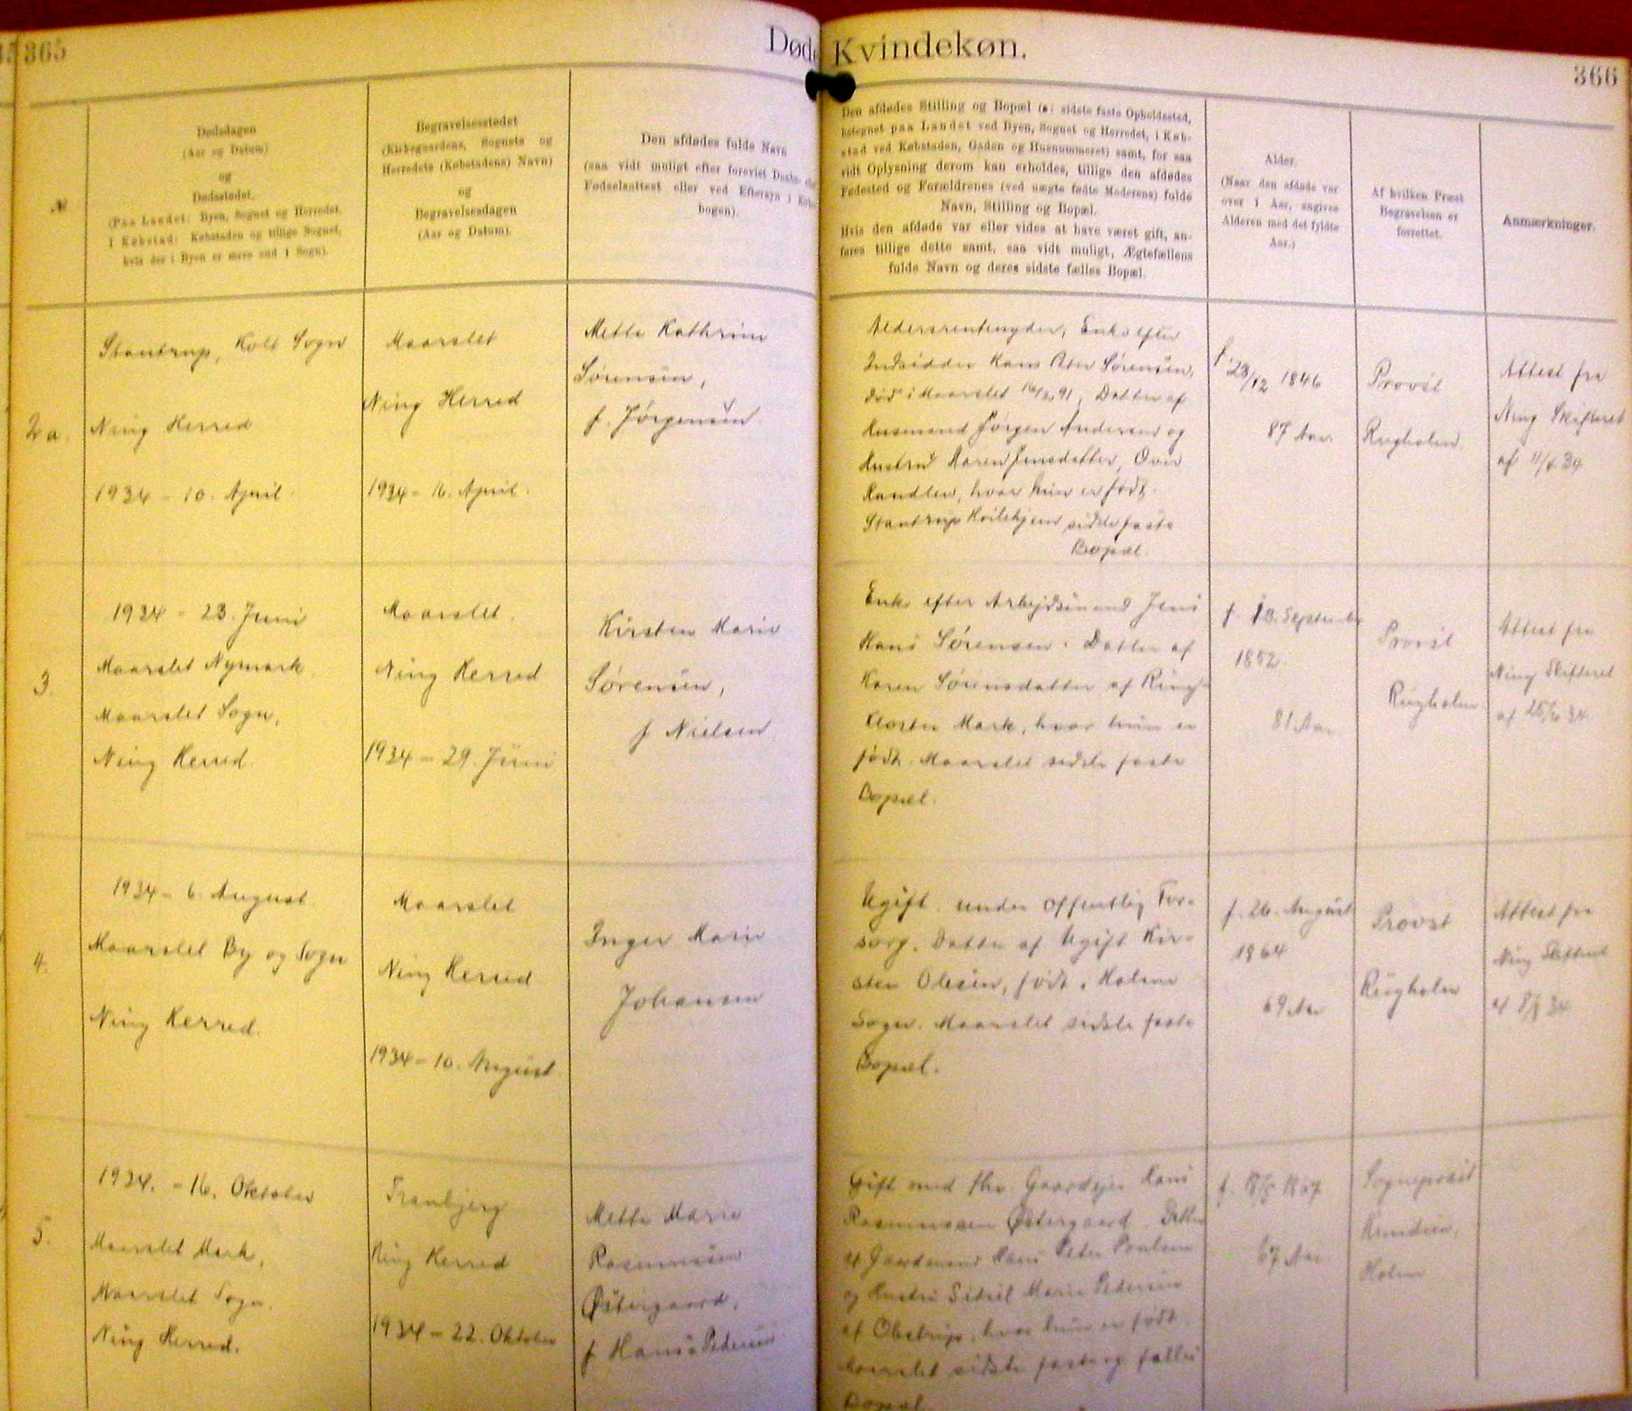 365
Døde Kvindekøn.
366
№
Dødsdagen
(Aar og Datum)
og
Dødsstedet.
(Paa Landet: Byen, Sognet og Herredet.
I Købstad: Købstaden og tillige Sognet,
hvis der i Byen er mere end 1 Sogn).
Begravelsesstedet
(Kirkegaardens, Sognets og
Herredets (Købstadens) Navn)
og
Begravelsesdagen
(Aar og Datum).
Den afdødes fulde Navn
(saa vidt muligt efter forevist Daabs- eller
Fødselsattest eller ved Eftersyn i Kirke-
bogen).
Den afdødes Stilling og Bopæl (ɔ: sidste faste Opholdssted,
betegnet paa Landet ved Byen, Sognet og Herredet, i Køb-
stad ved Købstaden, Gaden og Husnummeret) samt, for saa
vidt Oplysning derom kan erholdes, tillige den afdødes
Fødested og Forældrenes (ved uægte fødte Moderens) fulde
Navn, Stilling og Bopæl.
Hvis den afdøde var eller vides at have været gift, an-
føres tillige dette samt, saa vidt muligt, Ægtefællens
fulde Navn og deres sidste fælles Bopæl.
Alder.
(Naar den afdøde var
over 1 Aar, angives
Alderen med det fyldte
Aar.)
Af hvilken Præst
Begravelsen er
forrettet.
Anmærkninger.
2a.
Stautrup, Kolt Sogn
Ning Herred
1934 - 10. April.
Maarslet
Ning Herred
1934 - 16. April.
Mette Kathrine
Sørensen,
f. Jørgensen
Aldersrentenyder, Enke efter
Indsidder Hans Peter Sørensen,
død i Maarslet 91, Datter af
Husmand Jørgen Andersen og
Hustru Maren Jensdatter, Over
Randlev, hvor hun er født.
Stautrup Hvilehjem sidste faste
Bopæl.
f. 23/12 1846
87 Aar
Provst
Ringholm
Attest fra
Ning Skifteret
af 11/4 34
3.
1934 - 23. Juni
Maarslet Nymark
Maarslet Sogn,
Ning Herred.
Maarslet.
Ning Herred
1934 - 29. Juni
Kirsten Marie
Sørensen,
f Nielsen
Enke efter Arbejdsmand Jens
Hans Sørensen. Datter af
Karen Sørensdatter af Ring-
kloster Mark, hvor hun er
født. Maarslet sidste faste
Bopæl.
f. 13. September
1852.
81 Aar
Provst
Ringholm
Attest fra
Ning Skifteret
af 25/6 34
4.
1934 - 6. August
Maarslet By og Sogn
Ning Herred.
Maarslet
Ning Herred
1934 - 10. August
Inger Marie
Johansen
Ugift. under offentlig For-
sorg. Datter af Ugift Kir-
sten Olesen, født i Holme
Sogn. Maarslet sidste faste
Bopæl.
f. 26. August
1864
69 Aar
Provst
Ringholm
Attest fra
Ning Skifteret
af 8/8 34
5.
1934. - 16. Oktober
Maarslet Mark,
Maarslet Sogn.
Ning Herred.
Tranbjerg
Ning Herred
1934 - 22. Oktober
Mette Marie
Rasmussen
Østergaard,
f Hans Pedersen
Gift med fhv. Gaardejer Hans
Rasmussen Østergaard. Datter
af Gaardmand Hans Peter Poulsen
og Hustru Sidsel Marie Pedersen
af Obstrup, hvor hun er født.
Maarslet sidste faste og fælles
Bopæl
f. 1867
67 Aar
Sognepræst
Holme